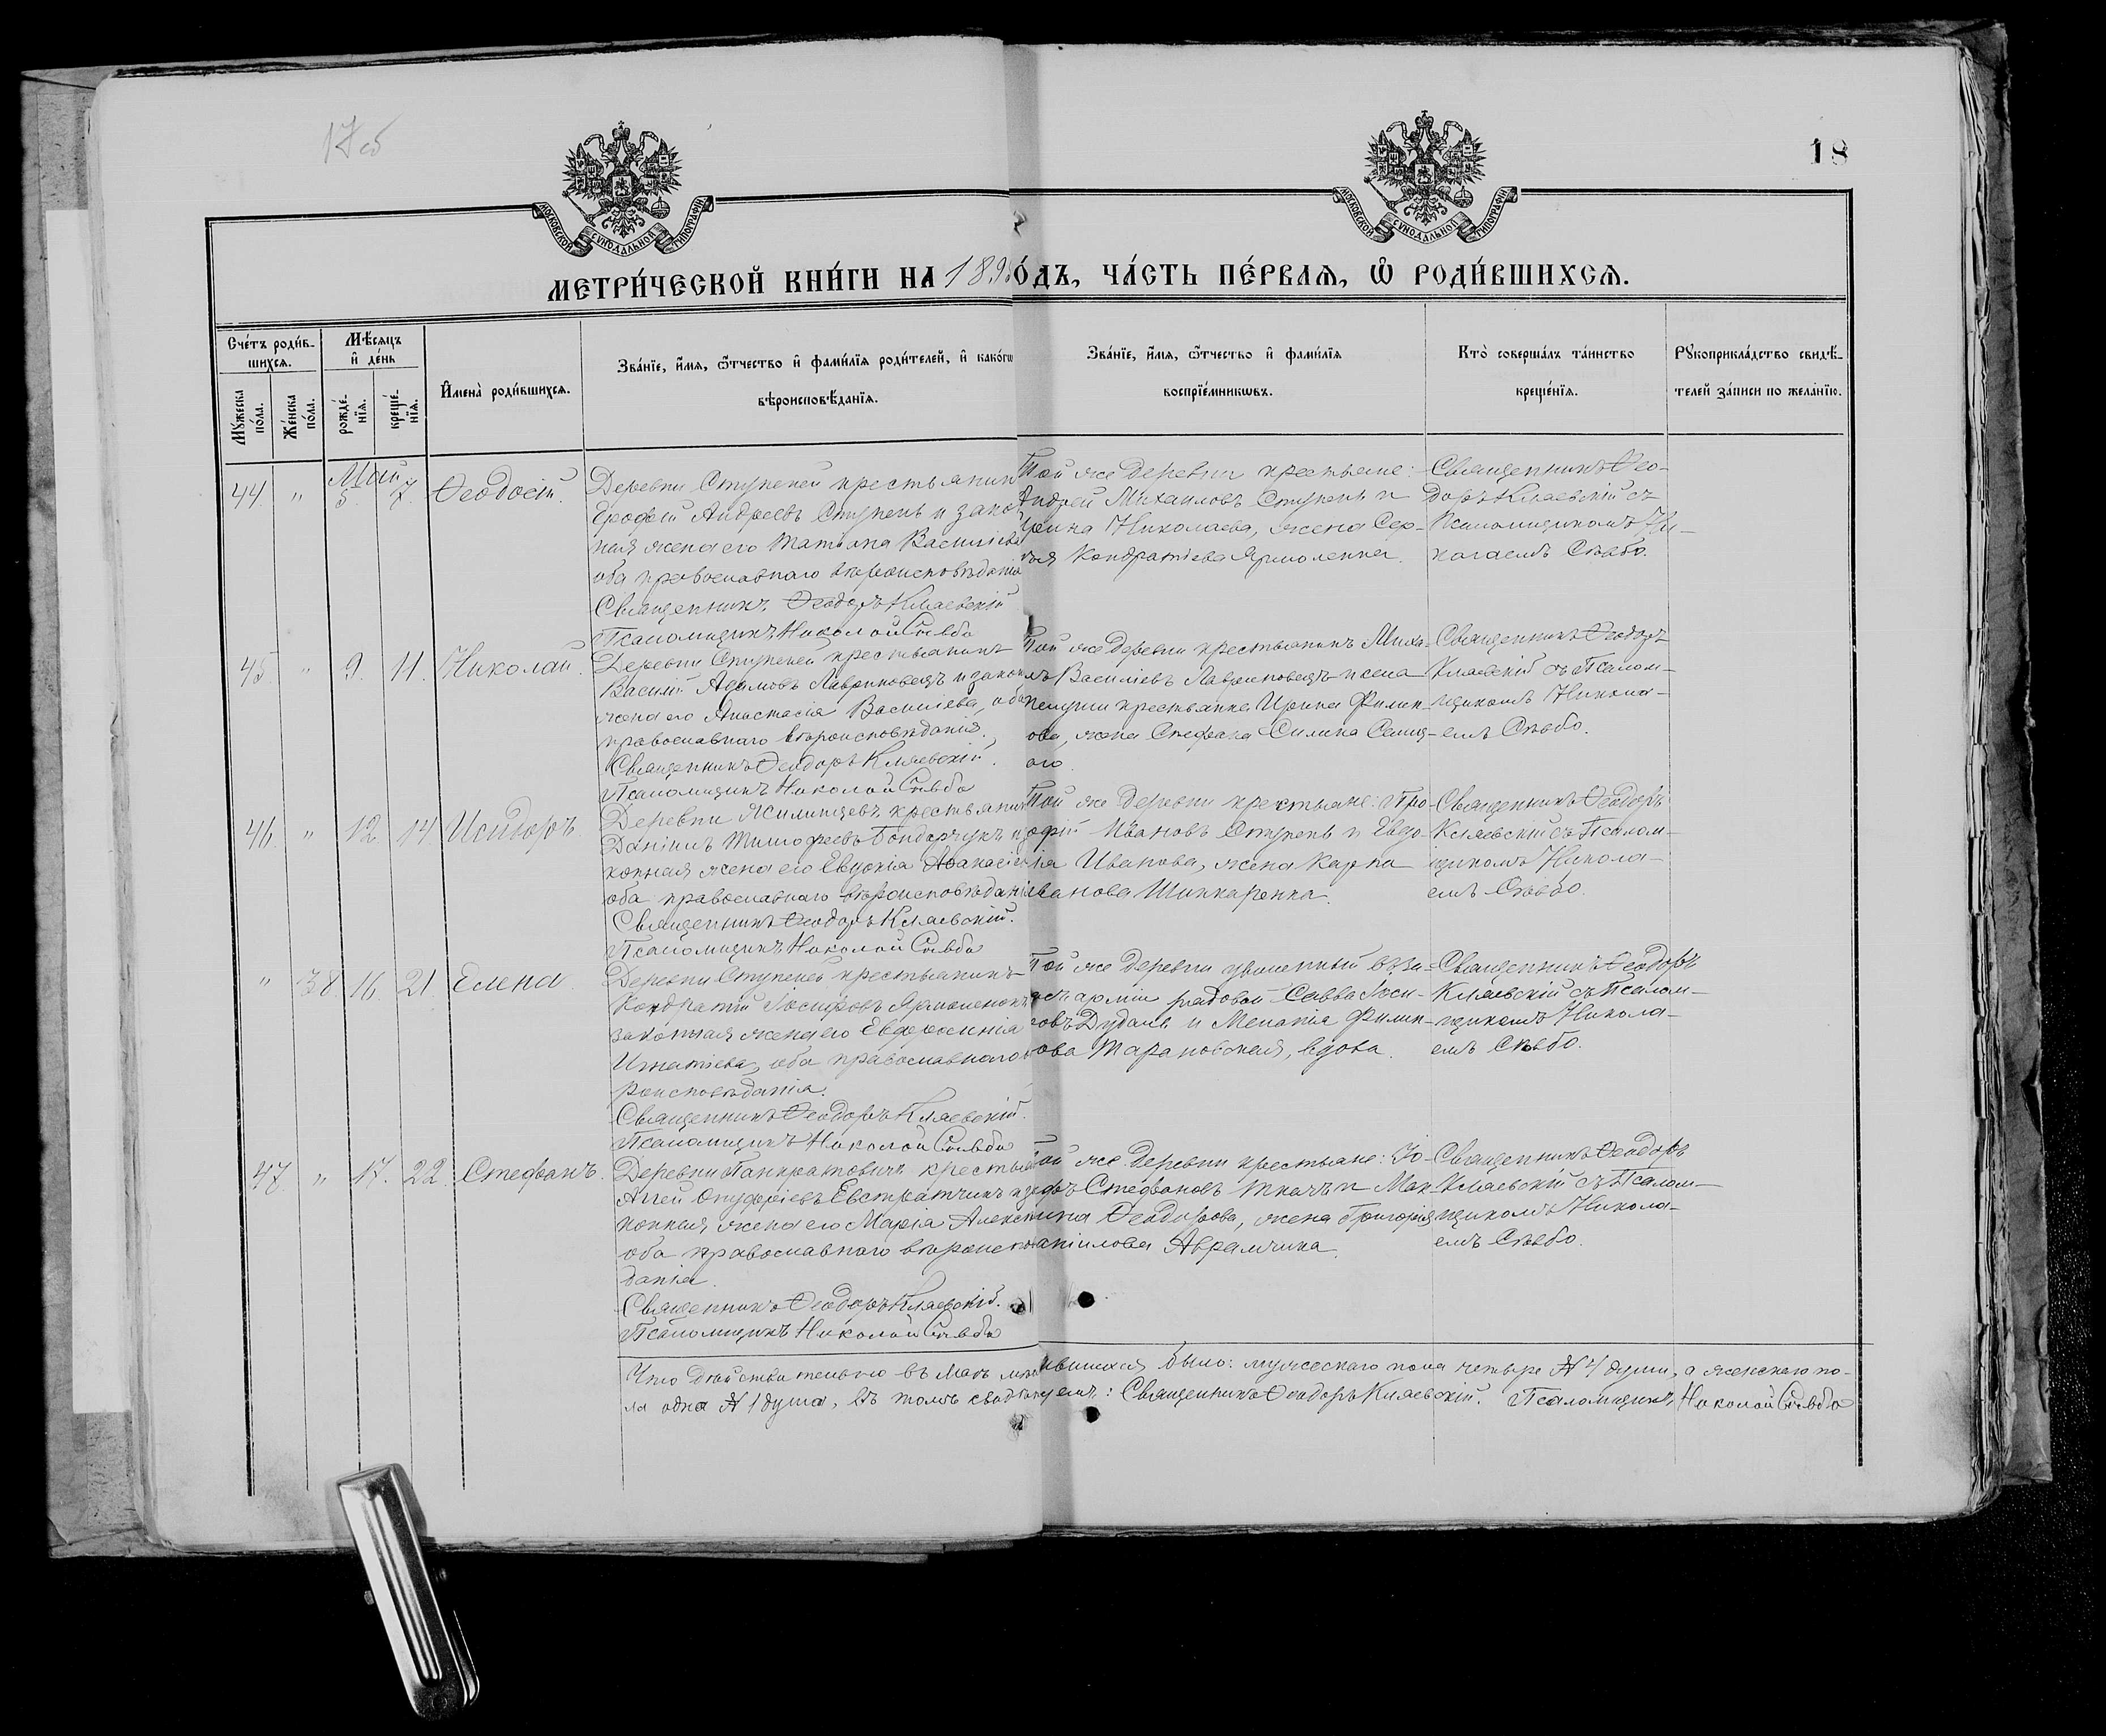 17об
18
МОСКОВСКОЙ СѴНОДАЛЬНОЙ ТИПОГРАФІИ
МОСКОВСКОЙ СѴНОДАЛЬНОЙ ТИПОГРАФІИ
МЕТРИ́ЧЕСКОЙ КНИ́ГИ НА 189 О́ДЪ, ЧА́СТЬ ПЕ́РВАѦ, Ѡ҆ РОДИ́ВШИХСѦ.
Сче́тъ роди́в-
шихсѧ.
Мѣ́сѧцъ
и҆ де́нь
Мꙋ́жеска
по́ла.
Же́нска
по́ла.
рожде́-
нїѧ.
креще́-
нїѧ.
И҆мена̀ роди́вшихсѧ.
Зва́нїе, и҆́мѧ, ѻ҆́тчество и҆ фами́лїѧ роди́телей, и҆ како́гѡ
вѣроисповѣ́данїѧ.
Зва́нїе, и҆́мѧ, ѻ҆́тчество и҆ фами́лїѧ
воспрїе́мникѡвъ.
Кто̀ соверша́лъ та́инство
креще́нїѧ.
Рꙋкоприкла́дство свидѣ́-
телей за́писи по жела́нїю.
Май
44. " 5. 7. Ѳеодосій.
Деревни Ступеней крестьянин
Ерофей Андреевъ Ступень и зако
ная жена его Татiана Василіева
оба православнаго вѣроисповѣданія
Священникъ Ѳеодоръ Кляевскій
Псаломщикъ Николай Съвбо
Той же деревни крестьяне:
Андрей Михаиловъ Ступень и
Ирина Николаева, жена Сер-
гея Кондратіева Ярмоленка
Священникъ Ѳео-
доръ Кляевскій съ
Псаломщикомъ Ни-
колаемъ Съвбо.
45. " 9. 11. Николай.
Деревни Ступеней крестьянинъ
Василій Адамовъ Лавриновецъ и закон
жена его Анастасія Василіева, оба
православнаго вѣроисповѣданія.
Священникъ Ѳеодоръ Кляевскій.
Псаломщикъ Николай Съвбо
Той же деревни крестьянинъ Миха-
лъ Василіевъ Лавриновецъ и села
крестьянка Ирина Филип-
ова, жена Стефана Силина
ого.
Священникъ Ѳеодоръ
Кляевскій съ Псалом-
щикомъ Никола-
емъ Съвбо.
46. " 12. 14. Исидоръ.
Деревни Ясилинцевъ крестьянин
Даніилъ Тимофеевъ Бондарчукъ и за
конная жена его Евдокія Аѳанасіе
оба православнаго вѣроисповѣдані
Священникъ Ѳеодоръ Кляевскій.
Псаломщикъ Николай Съвбо
Той же деревни крестьяне: Про-
офій Ивановъ Ступень и Евдо-
ія Иванова, жена Карпа
Иванова Шинкаренка.
Священникъ Ѳеодоръ
Кляевскій съ Псалом-
щикомъ Никола-
емъ Съвбо.
" 38. 16. 21. Елена.
Деревни Ступеней крестьянинъ
Кондратій Іосифовъ Ярмоленокъ
законная жена его Евфросинія
Игнатіева, оба православнаго
роисповѣданія.
Священникъ Ѳеодоръ Кляевскій.
Псаломщикъ Николай Съвбо
Той же деревни уволенный въ за-
асъ арміи рядовой Савва Іоси-
овъ Дудаль и Меланія Филип-
ова Тарановская, вдова.
Священникъ Ѳеодоръ
Кляевскій съ Псалом-
щикомъ Никола-
емъ Съвбо.
47. " 17. 22. Стефанъ.
Деревни Панкратовичъ крестья
Аггей Онуфріевъ Евстратчикъ и за
конная жена его Марія Алекс
оба православнаго вѣроиспо
данія.
Священникъ Ѳеодоръ Кляевскій.
Псаломщикъ Николай Съвбо
Той же деревни крестьяне: Іо-
ифъ Стефановъ Ткачъ и Мак-
има Ѳеодорова, жена Григорія
аніилова Аврамчика.
Священникъ Ѳеодоръ
Кляевскій съ Псалом-
щикомъ Никола-
емъ Съвбо.
Что дѣйствительно въ Маѣ ившихся было: мужескаго пола четыре № 4 души, а женскаго по-
ла одна № 1 душа, въ томъ свидѣт емъ: Священникъ Ѳеодоръ Кляевскій. Псаломщикъ Николай Съвбо